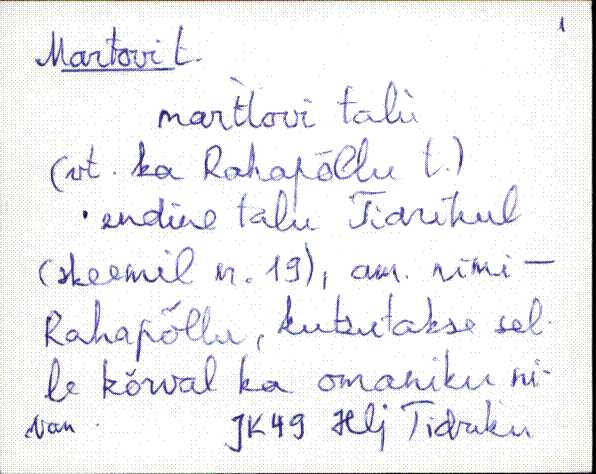 1
Martovi t.
mar`tlovi talù
(vt. ka Rahapõllu t.)
endine talu Tidrikul
(skeemil nr. 19), am. nimi –
Rahapõllu, kutsutakse sel-
le kõrval ka omaniku ni-
JK49 Hlj Tidriku